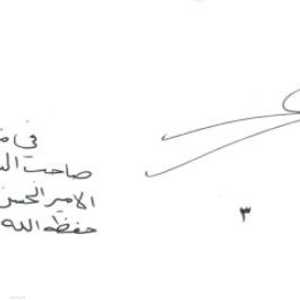 في
صاحب
الامير الحسن
حفظه الله
٣